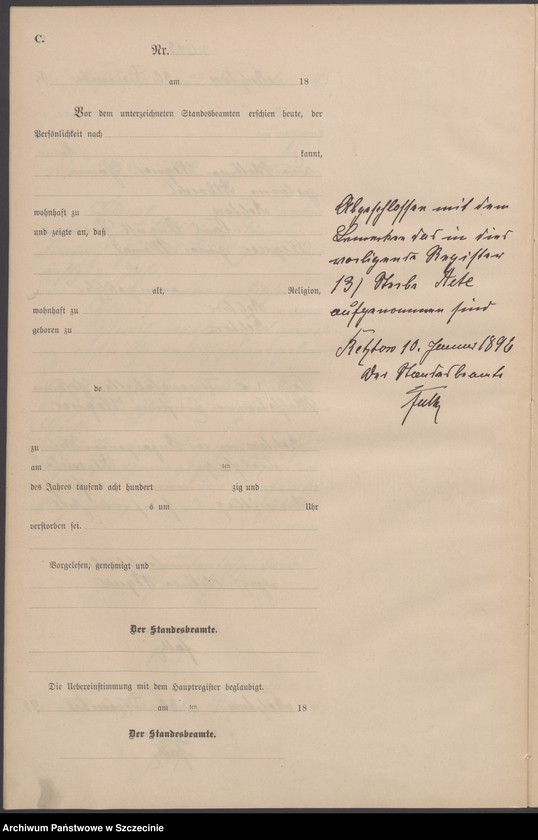 C.
Nr.
am 18
Vor dem unterzeichneten Standesbeamten erschien heute, der
Persönlichkeit nach
kannt,
wohnhaft zu
und zeigte an, daß
alt, Religion,
wohnhaft zu
geboren zu
de
zu
am ten
des Jahres tausend acht hundert zig und
s um Uhr
verstorben sei.
Vorgelesen, genehmigt und
Der Standesbeamte.
Die Uebereinstimmung mit dem Hauptregister beglaubigt.
am ten 18
Der Standesbeamte.
Abgeschlossen mit dem
Bemerken das in dies
vorligende Register
13) Sterbe Akte
aufgenommen sind
10. Januar 1896
Der Standesbeamte
Archiwum Państwowe w Szczecinie